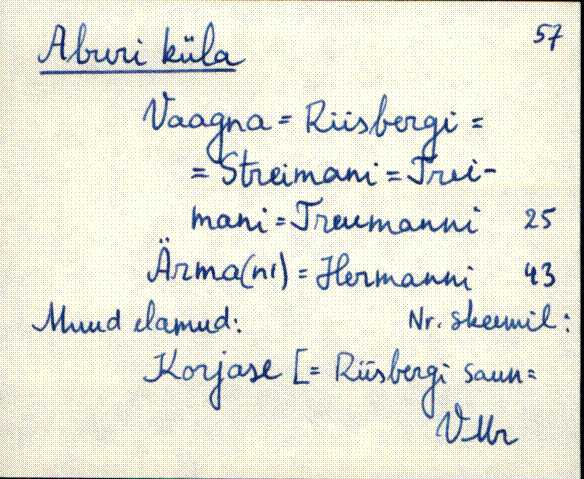 Aburi küla 57
Vaagna = Riisbergi =
= Streimani = Trei-
mani = Treumanni 25
Ärma(ni) = Hermanni 43
Muud elamud: Nr. skeemil:
Korjase [= Riisbergi saun=
VMr